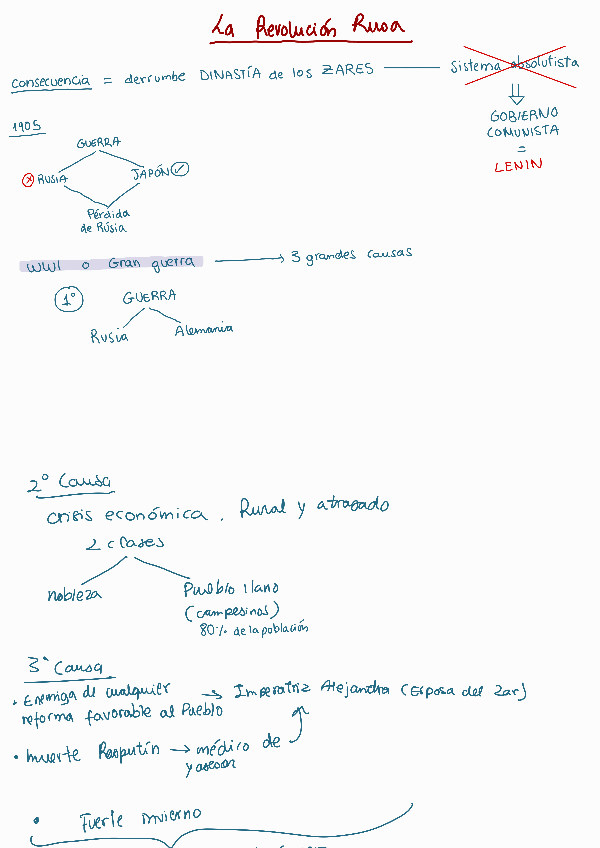 La Revolución Rusa
consecuencia = derrumbe DINASTÍA de los ZARES — Sistema absolutista
GOBIERNO
COMUNISTA
=
LENIN
1905
GUERRA
RUSIA JAPÓN
Pérdida
de Rúsia
WWI o Gran guerra → 3 grandes causas
1º GUERRA
Rusia Alemania
2º Causa
crisis económica. Rural y atrasado
2 clases
nobleza Pueblo llano
(campesinos)
80% de la población
3º Causa
• Enemiga de cualquier → Imperatriz Alejandra (Esposa del Zar)
reforma favorable al Pueblo
• muerte Rasputín → médico de
y asesor
• Fuerte invierno